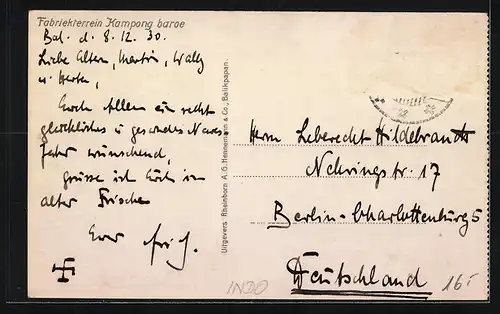 Fabriekterrein Kampong baroe
Bal. d. 8. 12. 30.
Liebe Eltern, Martin, Wally
u. Herta,
Euch Allen ein recht
glückliches u gesundes Neues-
Jahr wünschend,
grüsse ich Euch in
alter Frische
Euer
Uitgevers Rheinborn A.G. Hennemann & Co., Balikpapan.
Herrn Leberecht Hildebrandt
Nehringstr. 17
Berlin-Charlottenburg 5
Deutschland
INDO
16.-